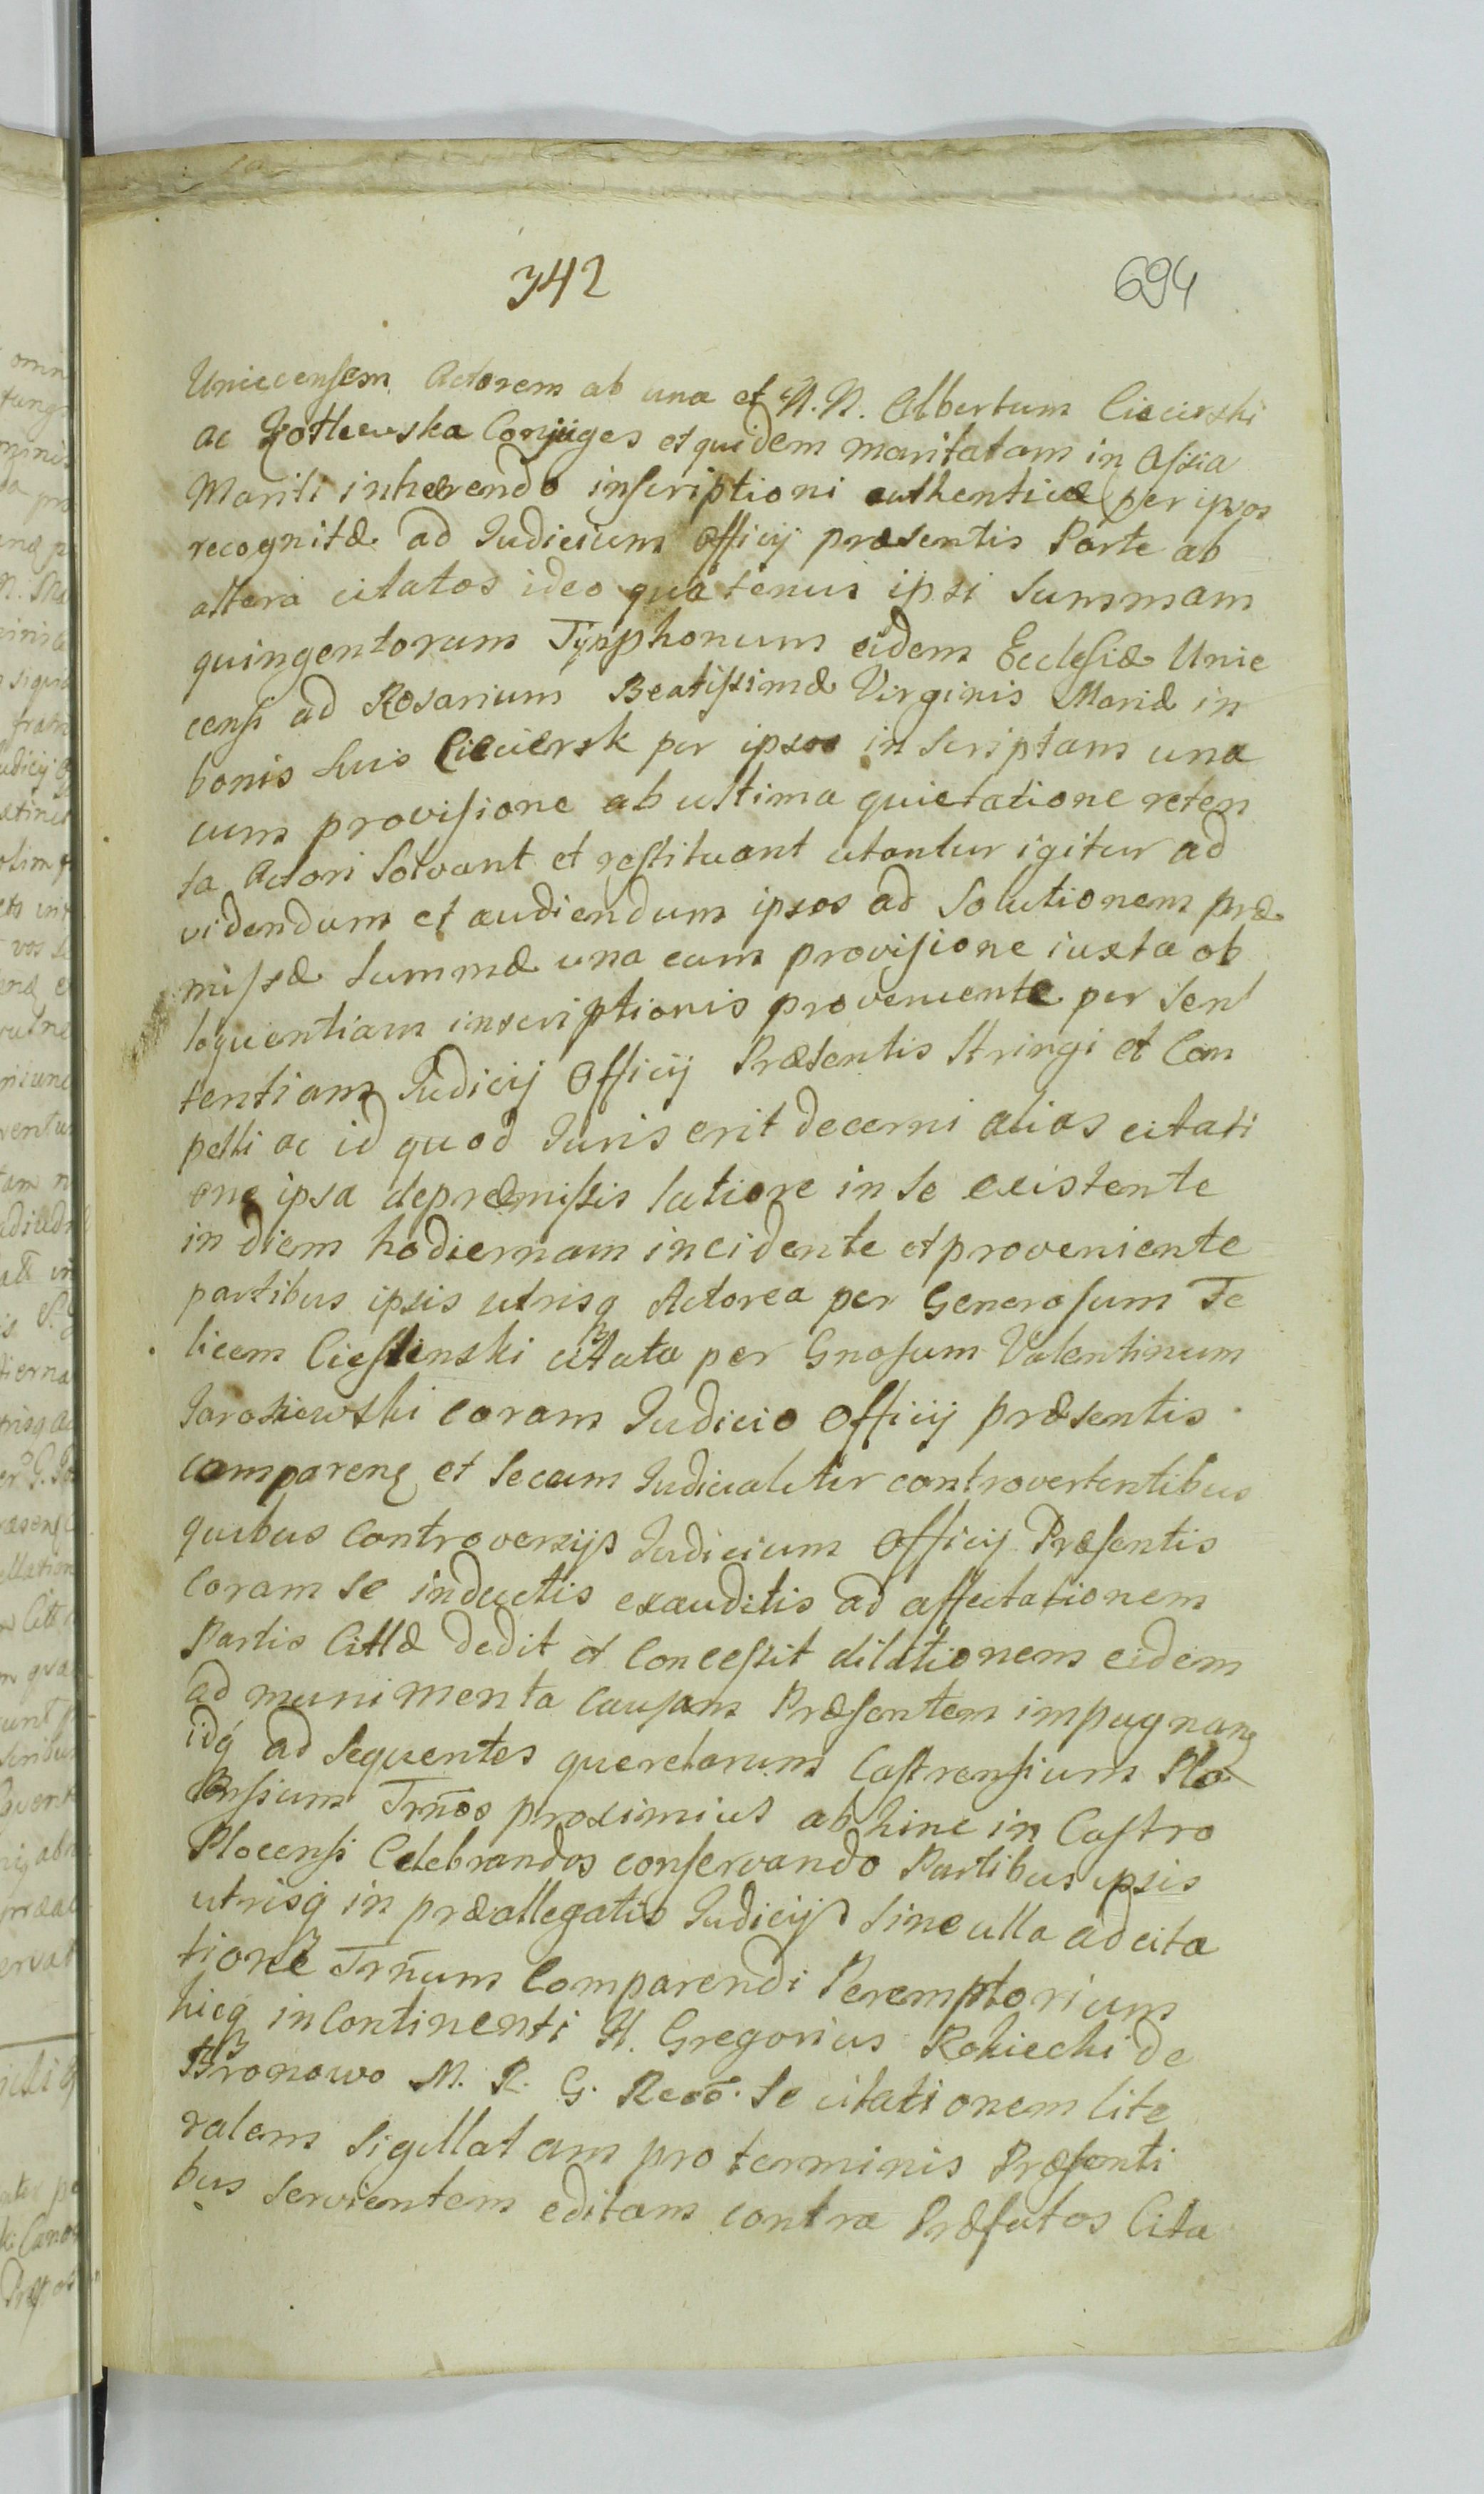 342
694
Uniecensem Actorem ab una et N. N. Albertum Ciecierski
ac Kotlewska Conjuges et quidem maritatam in Assia
Mariti inhærendo inscriptioni authenticæ per ipsos
recognitæ ad Judicium Officij præsentis Parte ab
altera citatos ideo quatenus ipsi Summam
quingentorum Tynphonum eidem Ecclesiæ Unie
censi ad Rosarium Beatissimæ Virginis Mariæ in
bonis suis Cieciersk per ipsos inscriptam una
cum provisione ab ultima quietatione reten
ta Actori Solvant et restituant citantur igitur ad
videndum et audiendum ipsos ad Solutionem præ
missæ Summæ una cum provisione iuxta ob
loquentiam inscriptionis proveniente per Sen
tentiam Judicij Officij Præsentis Stringi et Com
pelli ac id quod Juris erit decerni alias citati
one ipsa depræmissis latiore in se existente
in diem hodiernam incidente et proveniente
partibus ipsis utrisq Actorea per Generosum Fe
licem Cieslinski citata per Gnosum Valentinum
Jaroszewski coram Judicio Officij præsentis
comparenę et Secum Judicialiter controvertentibus
quibus Controversijs Judicium Officij Præsentis
Coram se inductis exauditis ad affectationem
Partis Cittæ dedit et Concessit dilationem eidem
ad munimenta Causam Præsentem impugnanę
idq́ ad Sequentes querelarum Castrensium Plo
censium Trm̃os proximius abhinc in Castro
Plocensi Celebrandos conservando Partibus ipsis
utrisq́ in præallegatis Judicijs Sine ulla adcita
tione Trm̃um Comparendi Peremptorium
hicq inContinenti N. Gregorius Rokiecki de
Bronowo M. R. G. Reco. Se citationem lite
ralem Sigillatam pro terminis Præsenti
bus Servientem editam contra Præfatos Cita